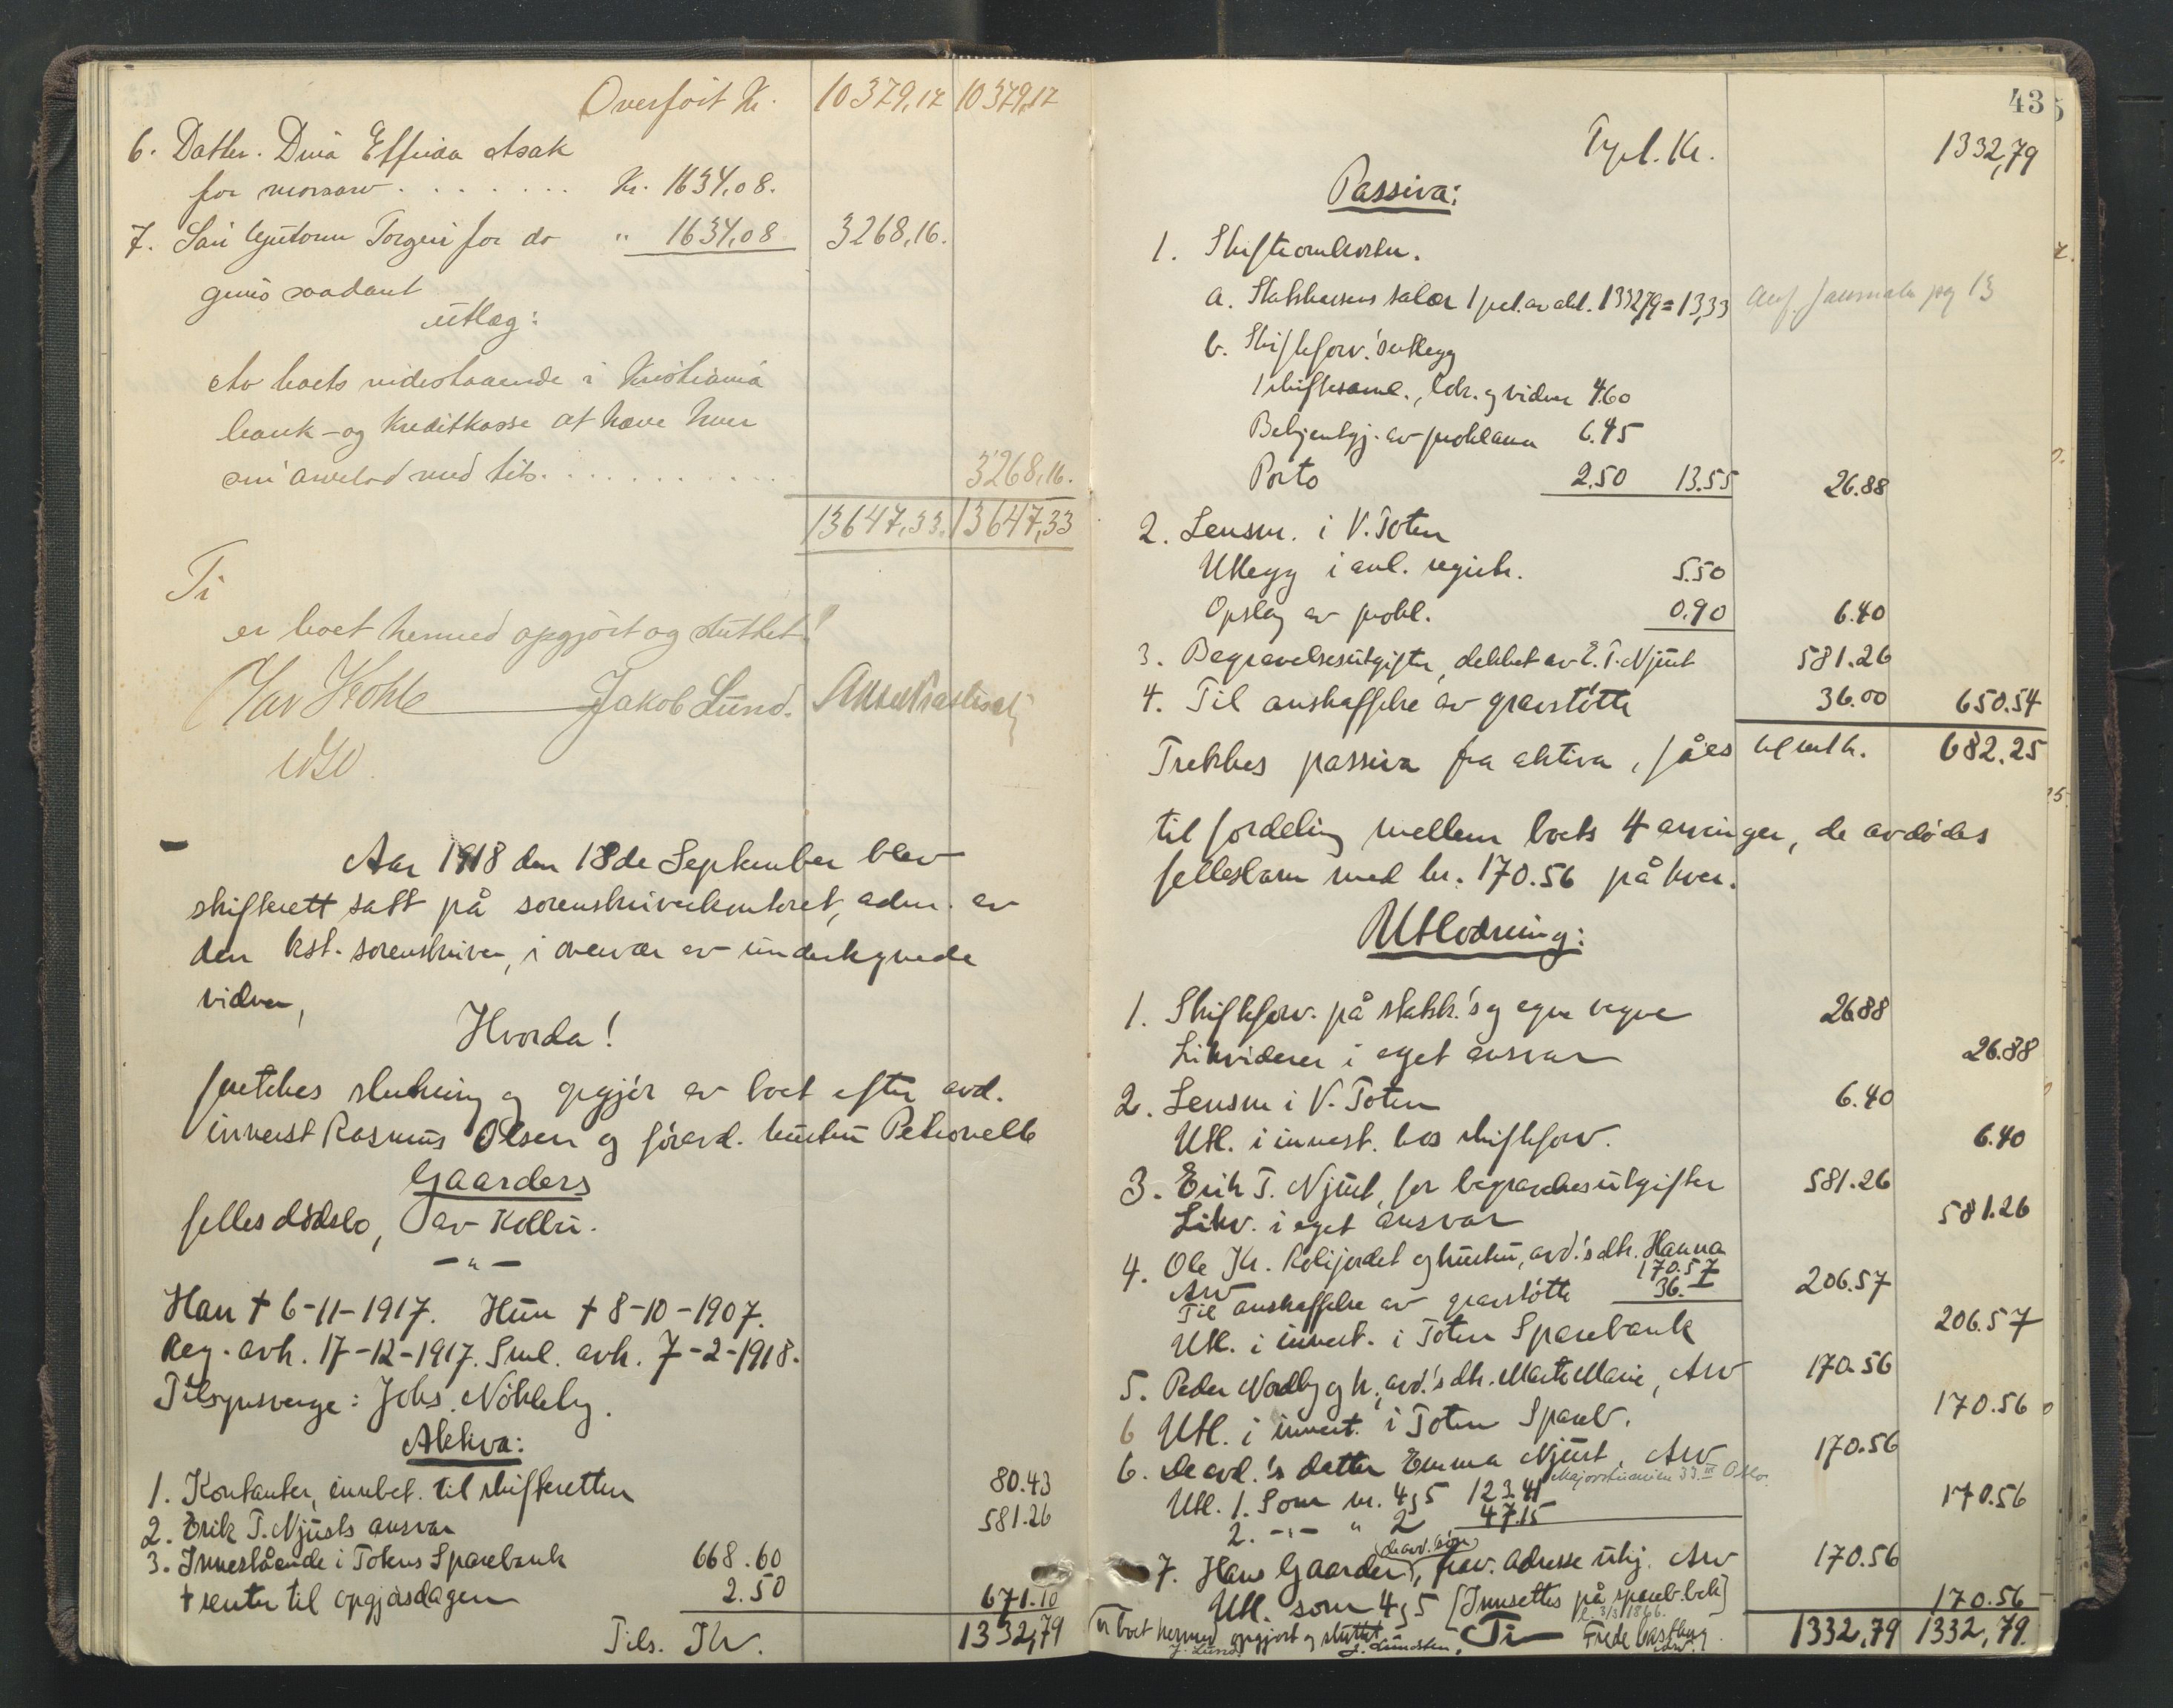 Overført Kr. 10379,17 10379,17
6. Datter Dina Elfrida Asak
for morsarv . . . . . . . Kr. 1634.08.
7. Søn Guttorm Torgeir for do " 1634,08 3268,16.
gives saadant
utlæg:
Av boets indestaaende i Kristiania
bank- og Kreditkasse at hæve hver
sin arvelod med tils. . . . . . . . . . . 3268,16.
13647,33. 13647,33
Ti
er boet hermed opgjört og sluttet!
Jakob Lund.
Aar 1918 den 18de September blev
skifterett satt på sorenskriverkontoret, adm. av
den kst. sorenskriver, i overvær av undertegnede
vidner,
Hvorda!
foretokes slutning og opgjör av boet efter avd.
inderst Rasmus Olsen og föravd. hustru Petronelle
Gaarders
felles dödsbo, av Kolbu.
— " —
Han † 6-11-1917. Hun † 8-10-1907.
Reg. avh. 17-12-1917. Sml. avh. 7-2-1918.
Tilsynsverge: Johs. Nökleby.
Aktiva:
1. Kontanter, innbet. til skifteretten 80.43
2. Erik T. Njusts ansvar 581.26
3. Innestående i Totens Sparebank 668.60
+ renter til opgjörsdagen 2.50 671.10
Tils. Kr. 1332,79
43
Tr​pt. Kr. 1332,79
Passiva:
1. Skifteomkostn.
a. Statskassens salær 1 pct. av akt. 1332,79 = 13,33
b. Skifteforv.'s utlegg
1 skiftesaml., lok. og vidner 4.60
Bekjentgj. av proklama 6.45
Porto 2.50 13.55 26.88
2. Lensm. i V. Toten
Utlegg i anl. registr. 5.50
Opslag av prokl. 0.90 6.40
3. Begravelsesutgifter, dekket av E. T. Njust 581.26
4. Til anskaffelse av gravstötte 36.00 650.54
Trekkes passiva fra aktiva, fåes 682.25
til fordeling mellem boets 4 arvinger, de avdödes
fellesbarn med kr. 170.56 på hver.
Utlodning:
1. Skifteforv. på statsk.'s og egne vegne 26.88
Likviderer i eget ansvar 26.88
2. Lensm i V. Toten 6.40
Utl. i innest. hos skifteforv. 6.40
3. Erik T. Njust, for begravelsesutgifter 581.26
Likv. i eget ansvar 581.26
4. Ole Kr. Kolijordet og hustru, avd.'s dtr. Hanna
Arv 170.57
Til anskaffelse av gravstötte 36.- 206.57
Utl. i innest. i Toten Sparebank 206.57
5. Peder Nordby og h., avd.'s dtr. Marte Marie, Arv 170.56
6 Utl. i innest. i Toten Spareb. 170.56
6. De avd.'s datter Emma Njust, Arv 170.56
Majorstuveien 33 III Oslo.
Utl. 1. Som nr. 4 og 5 123.41 170.56
2. -"- " 2 47.15
7. Hans Gaarder (de avd. sön), frav. adresse ukj. Arv 170.56
Utl. som 4 og 5 [Innsettes på spareb.bok] 170.56
f. 3/3 1866.
1332,79 1332,79.
er boet hermed opgjort og sluttet. Ti
J. Lund.